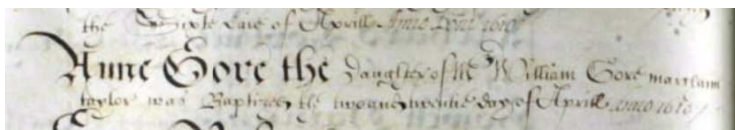 the Sixte daie of Aprill Anno Dom 1610
Anne Gore the Daughter of Mr William Gore marchant
taylor was Baptized the twoandtwentie day of Aprill anno 1610